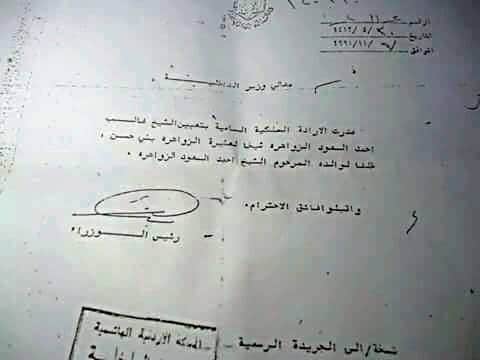 الرقم
التاريخ
الموافق
معالي وزير الداخلية
صدرت الارادة الملكية السامية بتعيين الشيخ غالب
احمد السعود الزواهره شيخا لعشيرة الزواهره بني حسن ،
خلفا لوالده المرحوم الشيخ احمد السعود الزواهره .
واقبلوا فائق الاحترام .
رئيس الــوزراء
نسخة/الى الجريدة الرسمية
المملكة الاردنية الهاشمية